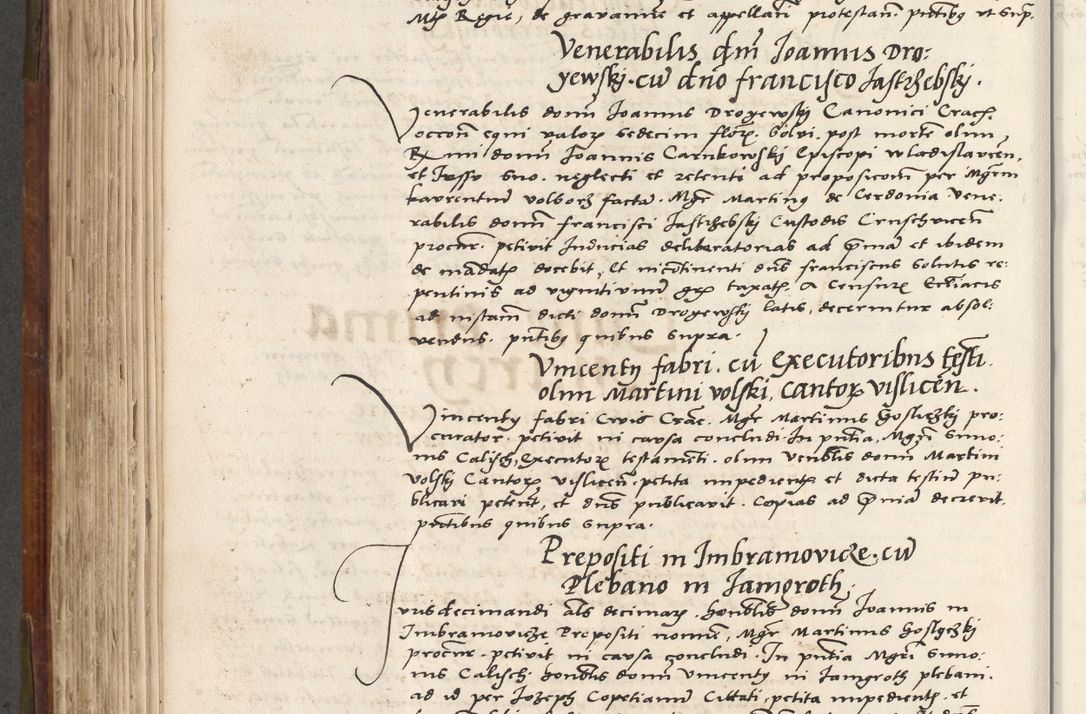 Mtis Regie, de gravamine et appellan protestan pntibg ut Supr.
Venerabilis dm̄ Joannis Dro:
yewski. cū dno francisco Jastrzebski.
Venerabilis domī Joannis Droyewski Canonici Cracs.
occon̄ equi valorꝫ sedecim florꝫ. solvi. post mortē olim
Rx mi domī Joannis Carnkowski Episcopi Wladislavcen.
et Jussu suo. neglecti et retenti ad proposicom̄ per Mgrm̄
Laurentiuꝫ volborz factā. Mgr Martinꝫ de Cerdonia Vene.
rabilis domī francisci Jastrzebski Custodis Cruschvicen̄
procur. petivit Inducias deliberatorias ad p̄mā et ibidem
de mādatꝫ docebit, Et incōtinenti dns franciscus solutis re:
pentinis ad viginti unū grꝫ taxatꝫ. A Censurꝫ Ecc̄iacis
ad instam̄ dicti domī Droyewski latis, decernitur absol:
vendus. pn̄tibg quibus supra.
Vincenty fabri. cū Executoribus testi.
olim Martini volski, cantorꝫ vislicen̄.
Vincenty fabri Civis Crac. Mgr Martinus Goslyczki pro:
curator. petivit in causa concludi. In pn̄tia, Mgri Simo:
nis Calisch, Executorꝫ testamēti. olim Venblis domī Martini
volski Cantorꝫ vislicen̄. petita impedientꝫ et dicta testiuꝫ pu:
blicari peteret, et dns publicavit. Copias ad p̄mā decrevit.
pn̄tibus quibus supra.
Prepositi in Imbramovicze. cū
Plebano in Jamgroth.
Juris decimandi als decimarꝫ. honblis domī Joannis in
Imbramovicze Prepositi nomīe, Mgr Martinus Goslyczki
procur. petivit in causa concludi. In pn̄tia Mgri Simo:
nis Calisch. honblis domī Vincenty in Jamgroth plebani.
ad id per Jozeph Copetianū Cittati, petita impedientꝫ. et